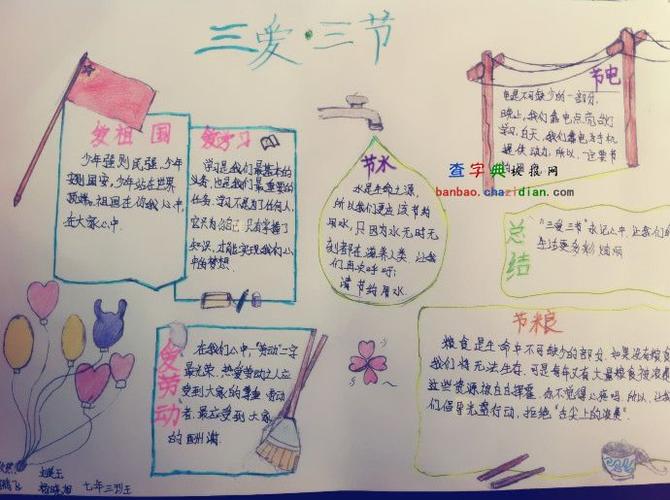 三爱·三节
爱祖国
少年强则民强,少年
少年站在世界
祖国在你我心中
在大家心中.
爱学习
学习是我们最基本的
义务,也是我们最重要的
任务.学习不是为了任何人,
它只为你自己.只有掌握了
知识,才能实现我们心
中的梦想.
节水
水是生命之源,
所以我们更应该节约
用水,只因为水无时无
刻都在滋养人类.让我
们再次呼吁:
请节约用水.
节电
电是不可缺少的一部分,
晚上,我们靠电点亮台灯
学习,白天,我们靠电为手机
提供动力,所以,一定要节
查字典手抄报网
banbao.chazidian.com
总结
"三爱三节"永记心中,让我们
生活更多彩 绚丽
爱劳动
在我们心中,"劳动"二字
最光荣,热爱劳动之人应
受到大家的尊重.劳动
者,最应受到大家
的酬谢.
节粮
粮食是生命中不可缺少的部分,如果没有粮食
我们将无法生存.可是每年又有大量粮食被浪费
这些资源被白白挥霍,你不觉得心痛吗.所以,让我
们倡导光盘行动,拒绝"舌尖上的浪费"
七年三班